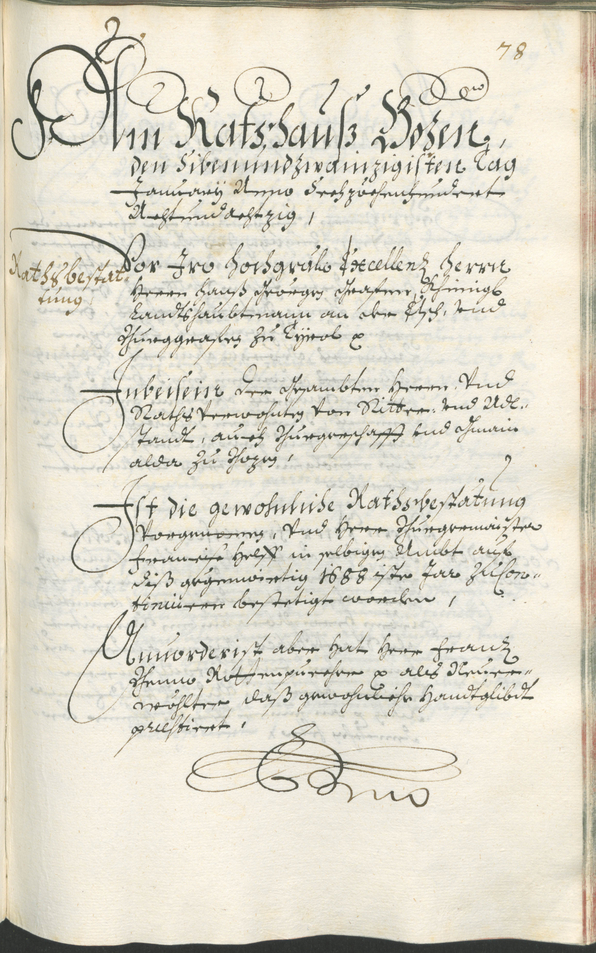 78
Am Rathshauß Bozen,
den sibenundzwainzigisten Tag
January Anno Sechzöchenhundert
Achtundachtzig,
Rathsbestat-
tung
Vor Iro hochgräfl: Excellenz herrn
Herrn Hanß Georgen Grafen
Landtshaubtmann an der Etsch, vnd
Burggrafen zu Tyrol p
Inbeisein der Gesambten Herrn, vnd
Rathsverwohnten von Ritter vnd Adl-
standt, auch Burgerschafft vnd Gmain
alda zu Bozen,
Ist die gewohnliche Rathsbestätung
Vorgenomen, vnd Herr Burgermaister
Francisc in selbigen Ambt auf
diß gegenwertig 1688 iste Jar zu Con-
tinuieren bestetigt worden,
Anuorderist aber hat Herr Franz
p alls Neuer-
wöhlter daß gewohnliche Handtglibdt
præstiert,
Anno